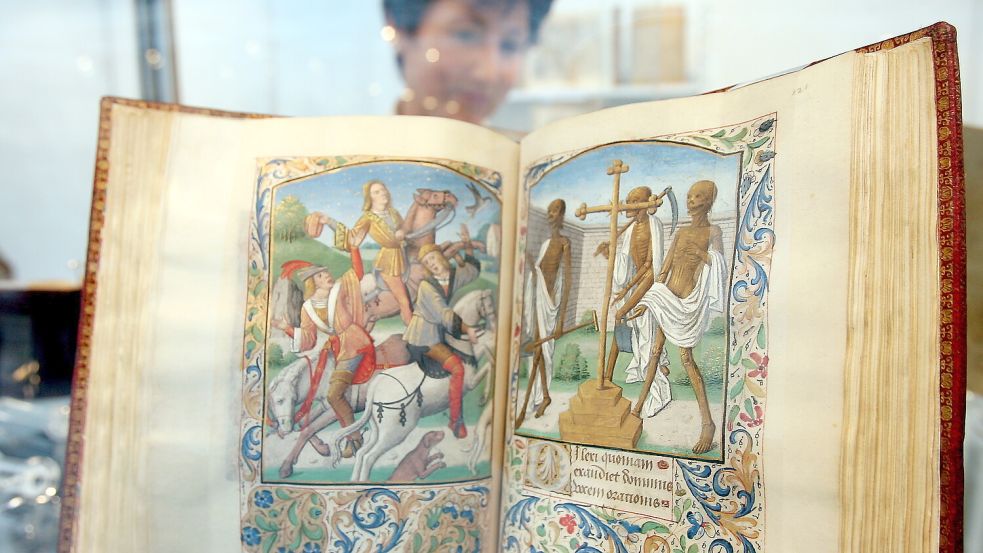 121
Ilexi quoniam
exaudiet dominus
vocem orationis